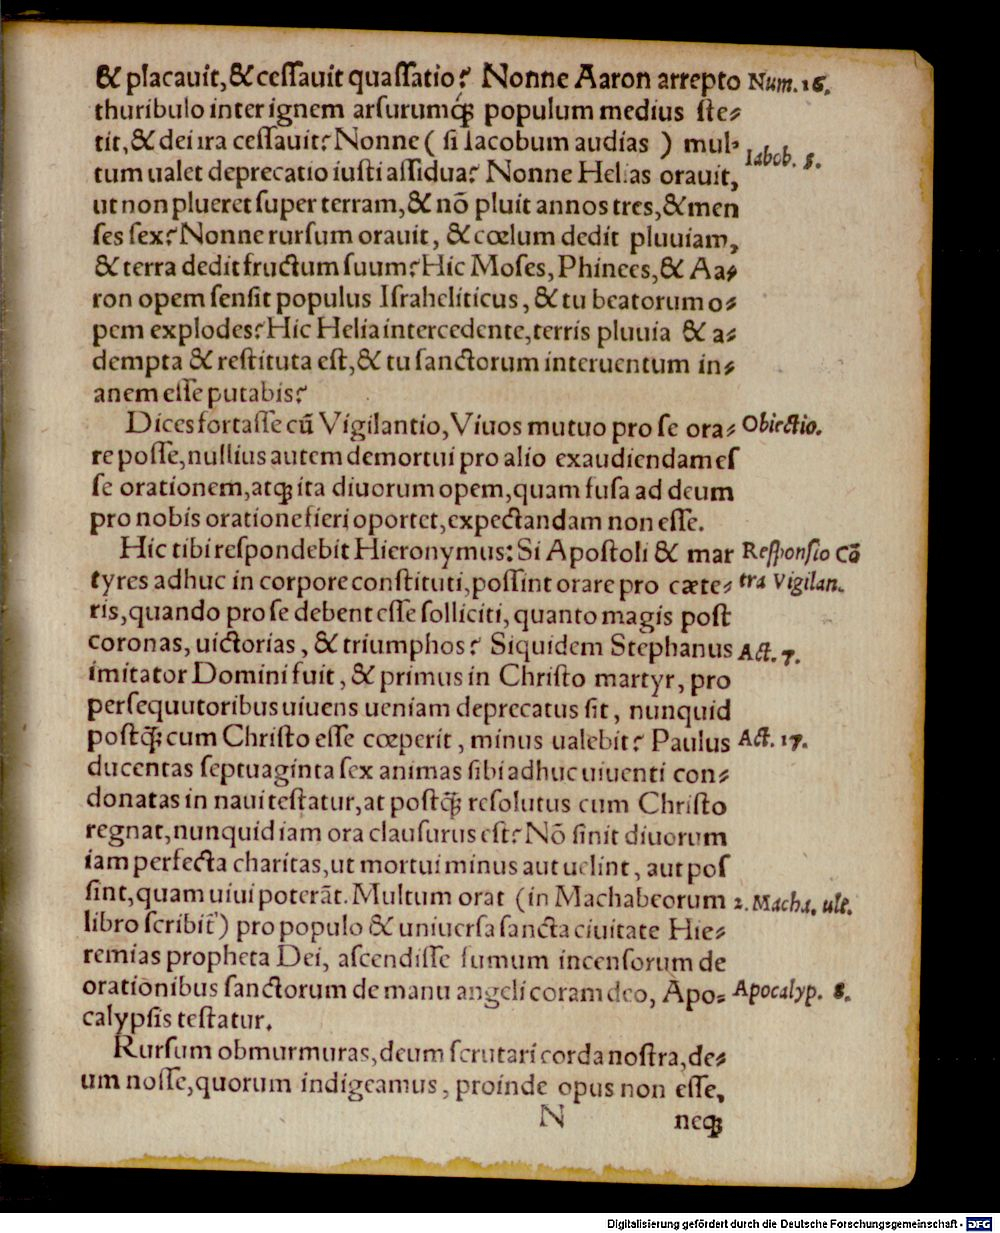 & placauit, & ceſſauit quaſſatio? Nonne Aaron arrepto Num. 16.
thuribulo inter ignem arſurumq́ꝫ populum medius ſte⸗
tit, & dei ira ceſſauit? Nonne ( ſi Iacobum audias ) mul⸗
Iabob. 5.
tum ualet deprecatio iuſti aſſidua? Nonne Helias orauit,
ut non plueret ſuper terram, & nõ pluit annos tres, & men
ſes ſex? Nonne rurſum orauit, & cœlum dedit pluuiam,
& terra dedit fructum ſuum? Hic Moſes, Phinees, & Aa⸗
ron opem ſenſit populus Iſraheliticus, & tu beatorum o⸗
pem explodes? Hic Helia intercedente, terris pluuia & a⸗
dempta & reſtituta eſt, & tu ſanctorum interuentum in⸗
anem eſſe putabis?
Dices fortaſſe cũ Vigilantio, Viuos mutuo pro ſe ora⸗ Obiectio.
re poſſe, nullius autem demortui pro alio exaudiendam eſ
ſe orationem, atqꝫ ita diuorum opem, quam fuſa ad deum
pro nobis oratione fieri oportet, expectandam non eſſe.
Hic tibi reſpondebit Hieronymus: Si Apoſtoli & mar Reſponſio Cõ
tyres adhuc in corpore conſtituti, poſſint orare pro cæte⸗ tra Vigilan.
ris, quando pro ſe debent eſſe ſolliciti, quanto magis poſt
coronas, uictorias, & triumphos? Siquidem Stephanus Act. 7.
imitator Domini fuit, & primus in Chriſto martyr, pro
perſequutoribus uiuens ueniam deprecatus ſit, nunquid
poſtq̃ꝫ cum Chriſto eſſe cœperit, minus ualebit? Paulus Act. 17.
ducentas ſeptuaginta ſex animas ſibi adhuc uiuenti con⸗
donatas in naui teſtatur, at poſtq̃ꝫ reſolutus cum Chriſto
regnat, nunquid iam ora clauſurus eſt? Nõ ſinit diuorum
iam perfecta charitas, ut mortui minus aut uelint, aut poſ
ſint, quam uiui poterãt. Multum orat (in Machabeorum 2. Macha. ult.
libro ſcribit̃) pro populo & uniuerſa ſancta ciuitate Hie⸗
remias propheta Dei, aſcendiſſe fumum incenſorum de
orationibus ſanctorum de manu angeli coram deo, Apo⸗ Apocalyp. 8.
calypſis teſtatur.
Rurſum obmurmuras, deum ſcrutari corda noſtra, de⸗
um noſſe, quorum indigeamus, proinde opus non eſſe,
N neqꝫ
Digitalisierung gefördert durch die Deutsche Forschungsgemeinschaft - DFG